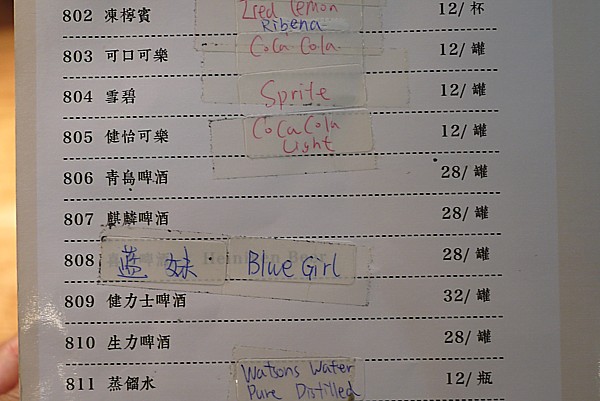 Iced Lemon
802 凍檸賓 Ribena 12/ 杯
803 可口可樂 Coca Cola 12/ 罐
804 雪碧 Sprite 12/ 罐
805 健怡可樂 CocaCola Light 12/ 罐
806 青島啤酒 28/ 罐
807 麒麟啤酒 28/ 罐
808 蓝妹 Blue Girl 28/ 罐
809 健力士啤酒 32/ 罐
810 生力啤酒 28/ 罐
811 蒸餾水 Watsons Water 12/ 瓶
Pure Distilled